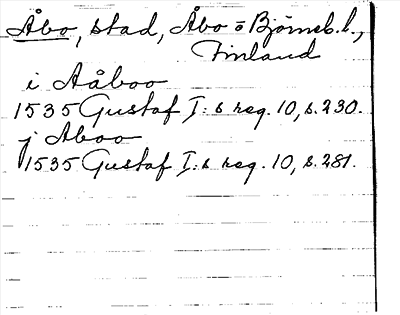 Åbo, stad, Åbo o Björneb. l.,
Finland
i Aåboo
1535 Gustaf I:s reg. 10, s. 230.
j Aboo
1535 Gustaf I:s reg. 10, s. 281.